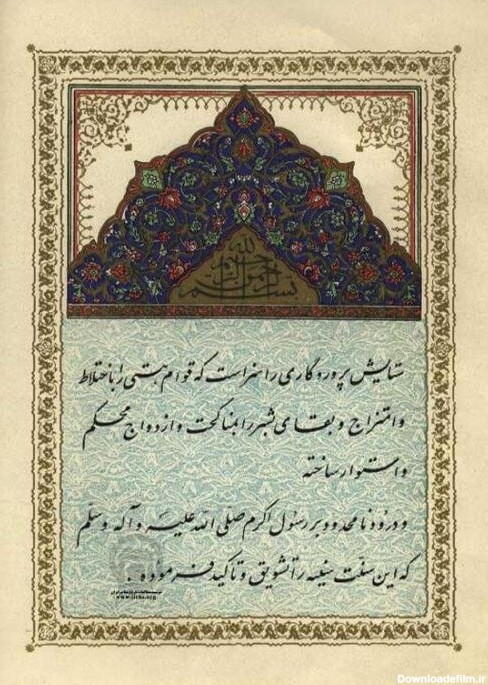 بسم الله الرحمن الرحیم
ستایش پروردگاری را سزاست که قوام هستی را باختلاط
و امتزاج و بقای بشر را بمناکحت و ازدواج محکم
و استوار ساخته
و درود نامحدود بر رسول اکرم صلی الله علیه و آله و سلم
که این سنت سنیه را تشویق و تأکید فرموده .
www.iichs.org
Downloadefilm.ir